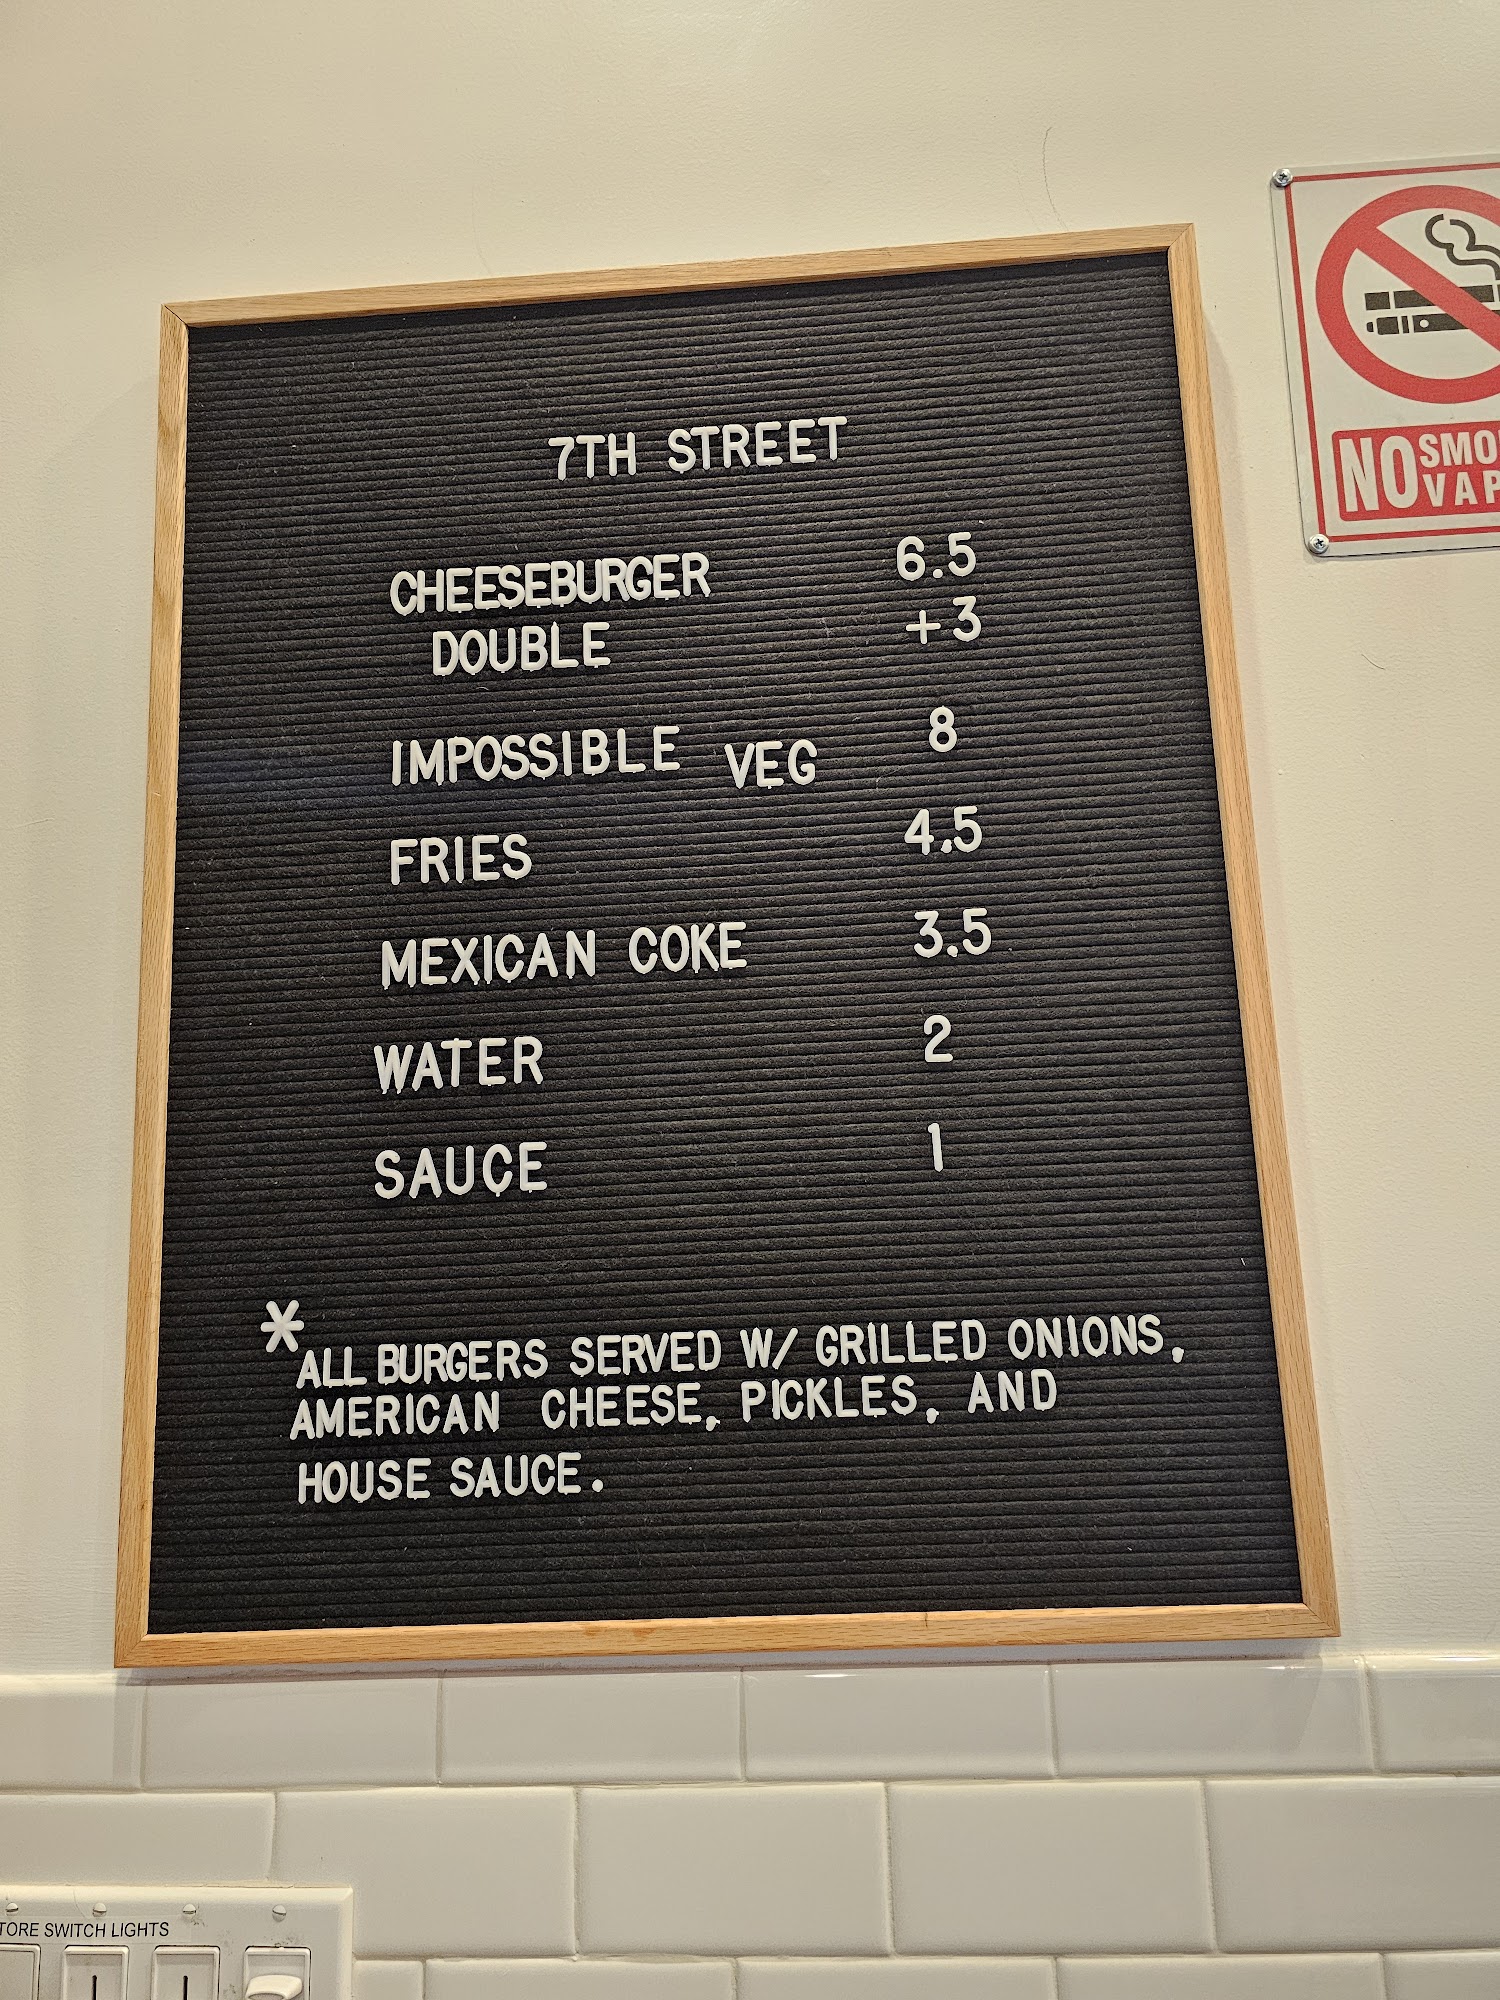 7TH STREET
CHEESEBURGER 6.5
DOUBLE +3
IMPOSSIBLE VEG 8
FRIES 4.5
MEXICAN COKE 3.5
WATER 2
SAUCE 1
* ALL BURGERS SERVED W/ GRILLED ONIONS,
AMERICAN CHEESE, PICKLES, AND
HOUSE SAUCE.
NO
SWITCH LIGHTS